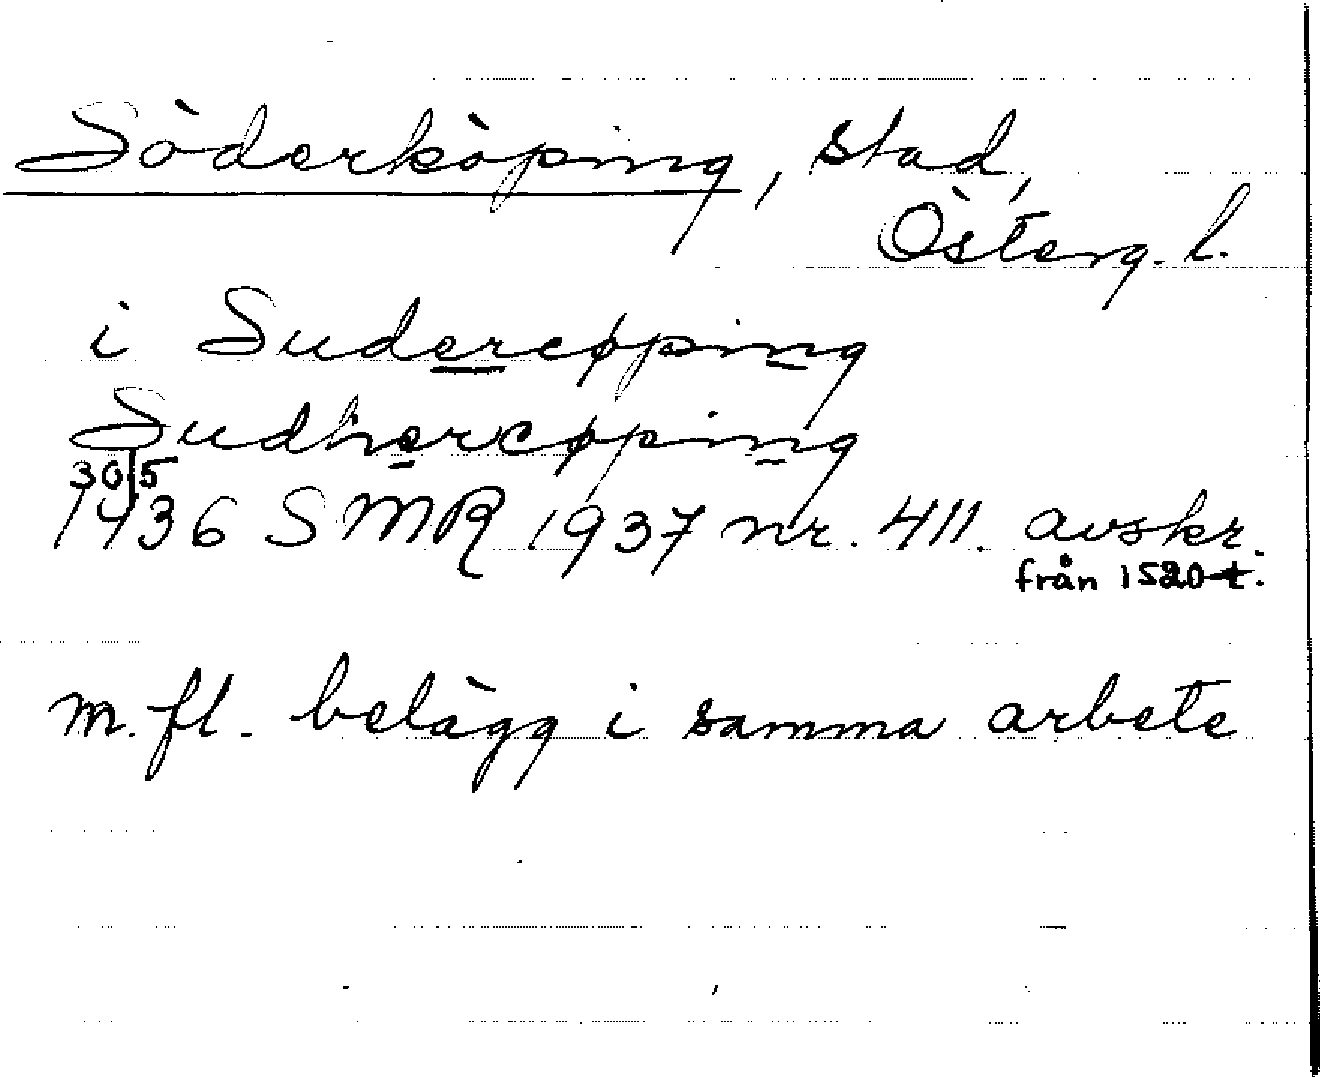 Söderköping, stad,
Österg. l.
i Sudercøping
Sudhercøping
30/5
1436 SMR 1937 nr. 411. avskr.
från 1520-t.
m. fl. belägg i samma arbete